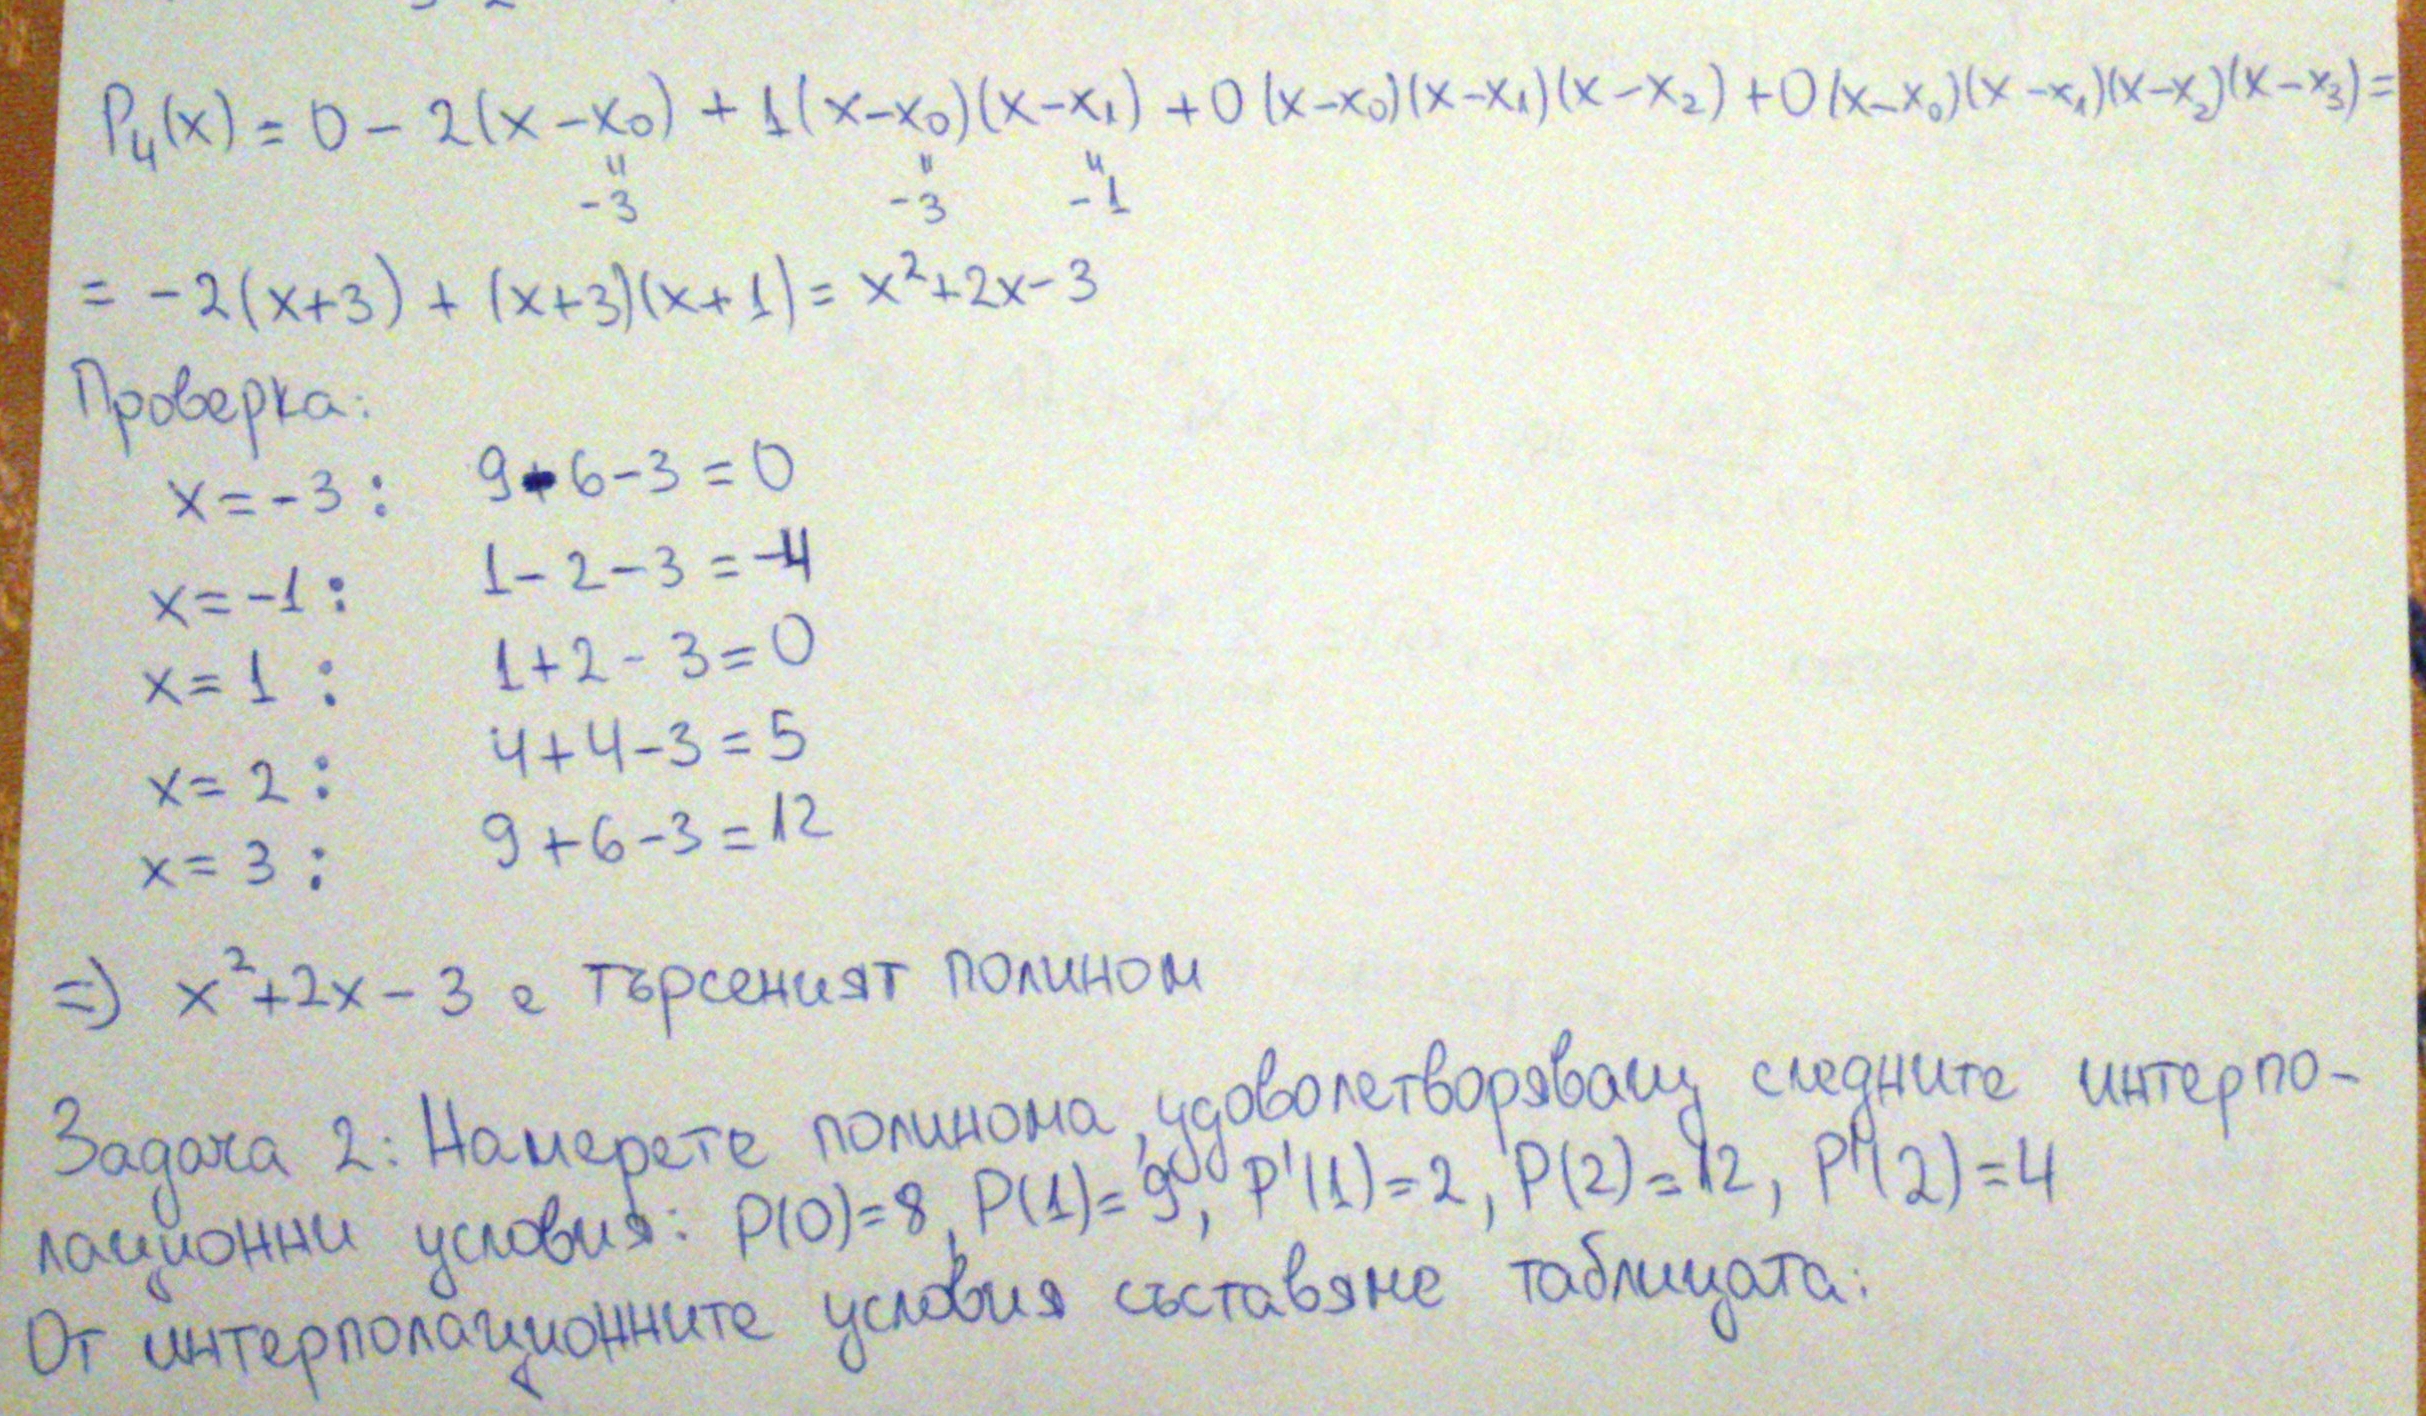 P₄(x) = 0 - 2(x-x₀) + 1(x-x₀)(x-x₁) + 0(x-x₀)(x-x₁)(x-x₂) + 0(x-x₀)(x-x₁)(x-x₂)(x-x₃) =
" " "
-3 -3 -1
= -2(x+3) + (x+3)(x+1) = x²+2x-3
Проверка:
x=-3: 9-6-3=0
x=-1: 1-2-3=-4
x=1: 1+2-3=0
x=2: 4+4-3=5
x=3: 9+6-3=12
=> x²+2x-3 е търсеният полином
Задача 2: Намерете полинома, удоволетворяващ следните интерпо-
лационни условия: P(0)=8, P(1)=9, P'(1)=2, P(2)=12, P'(2)=4
От интерполационните условия съставяме таблицата: